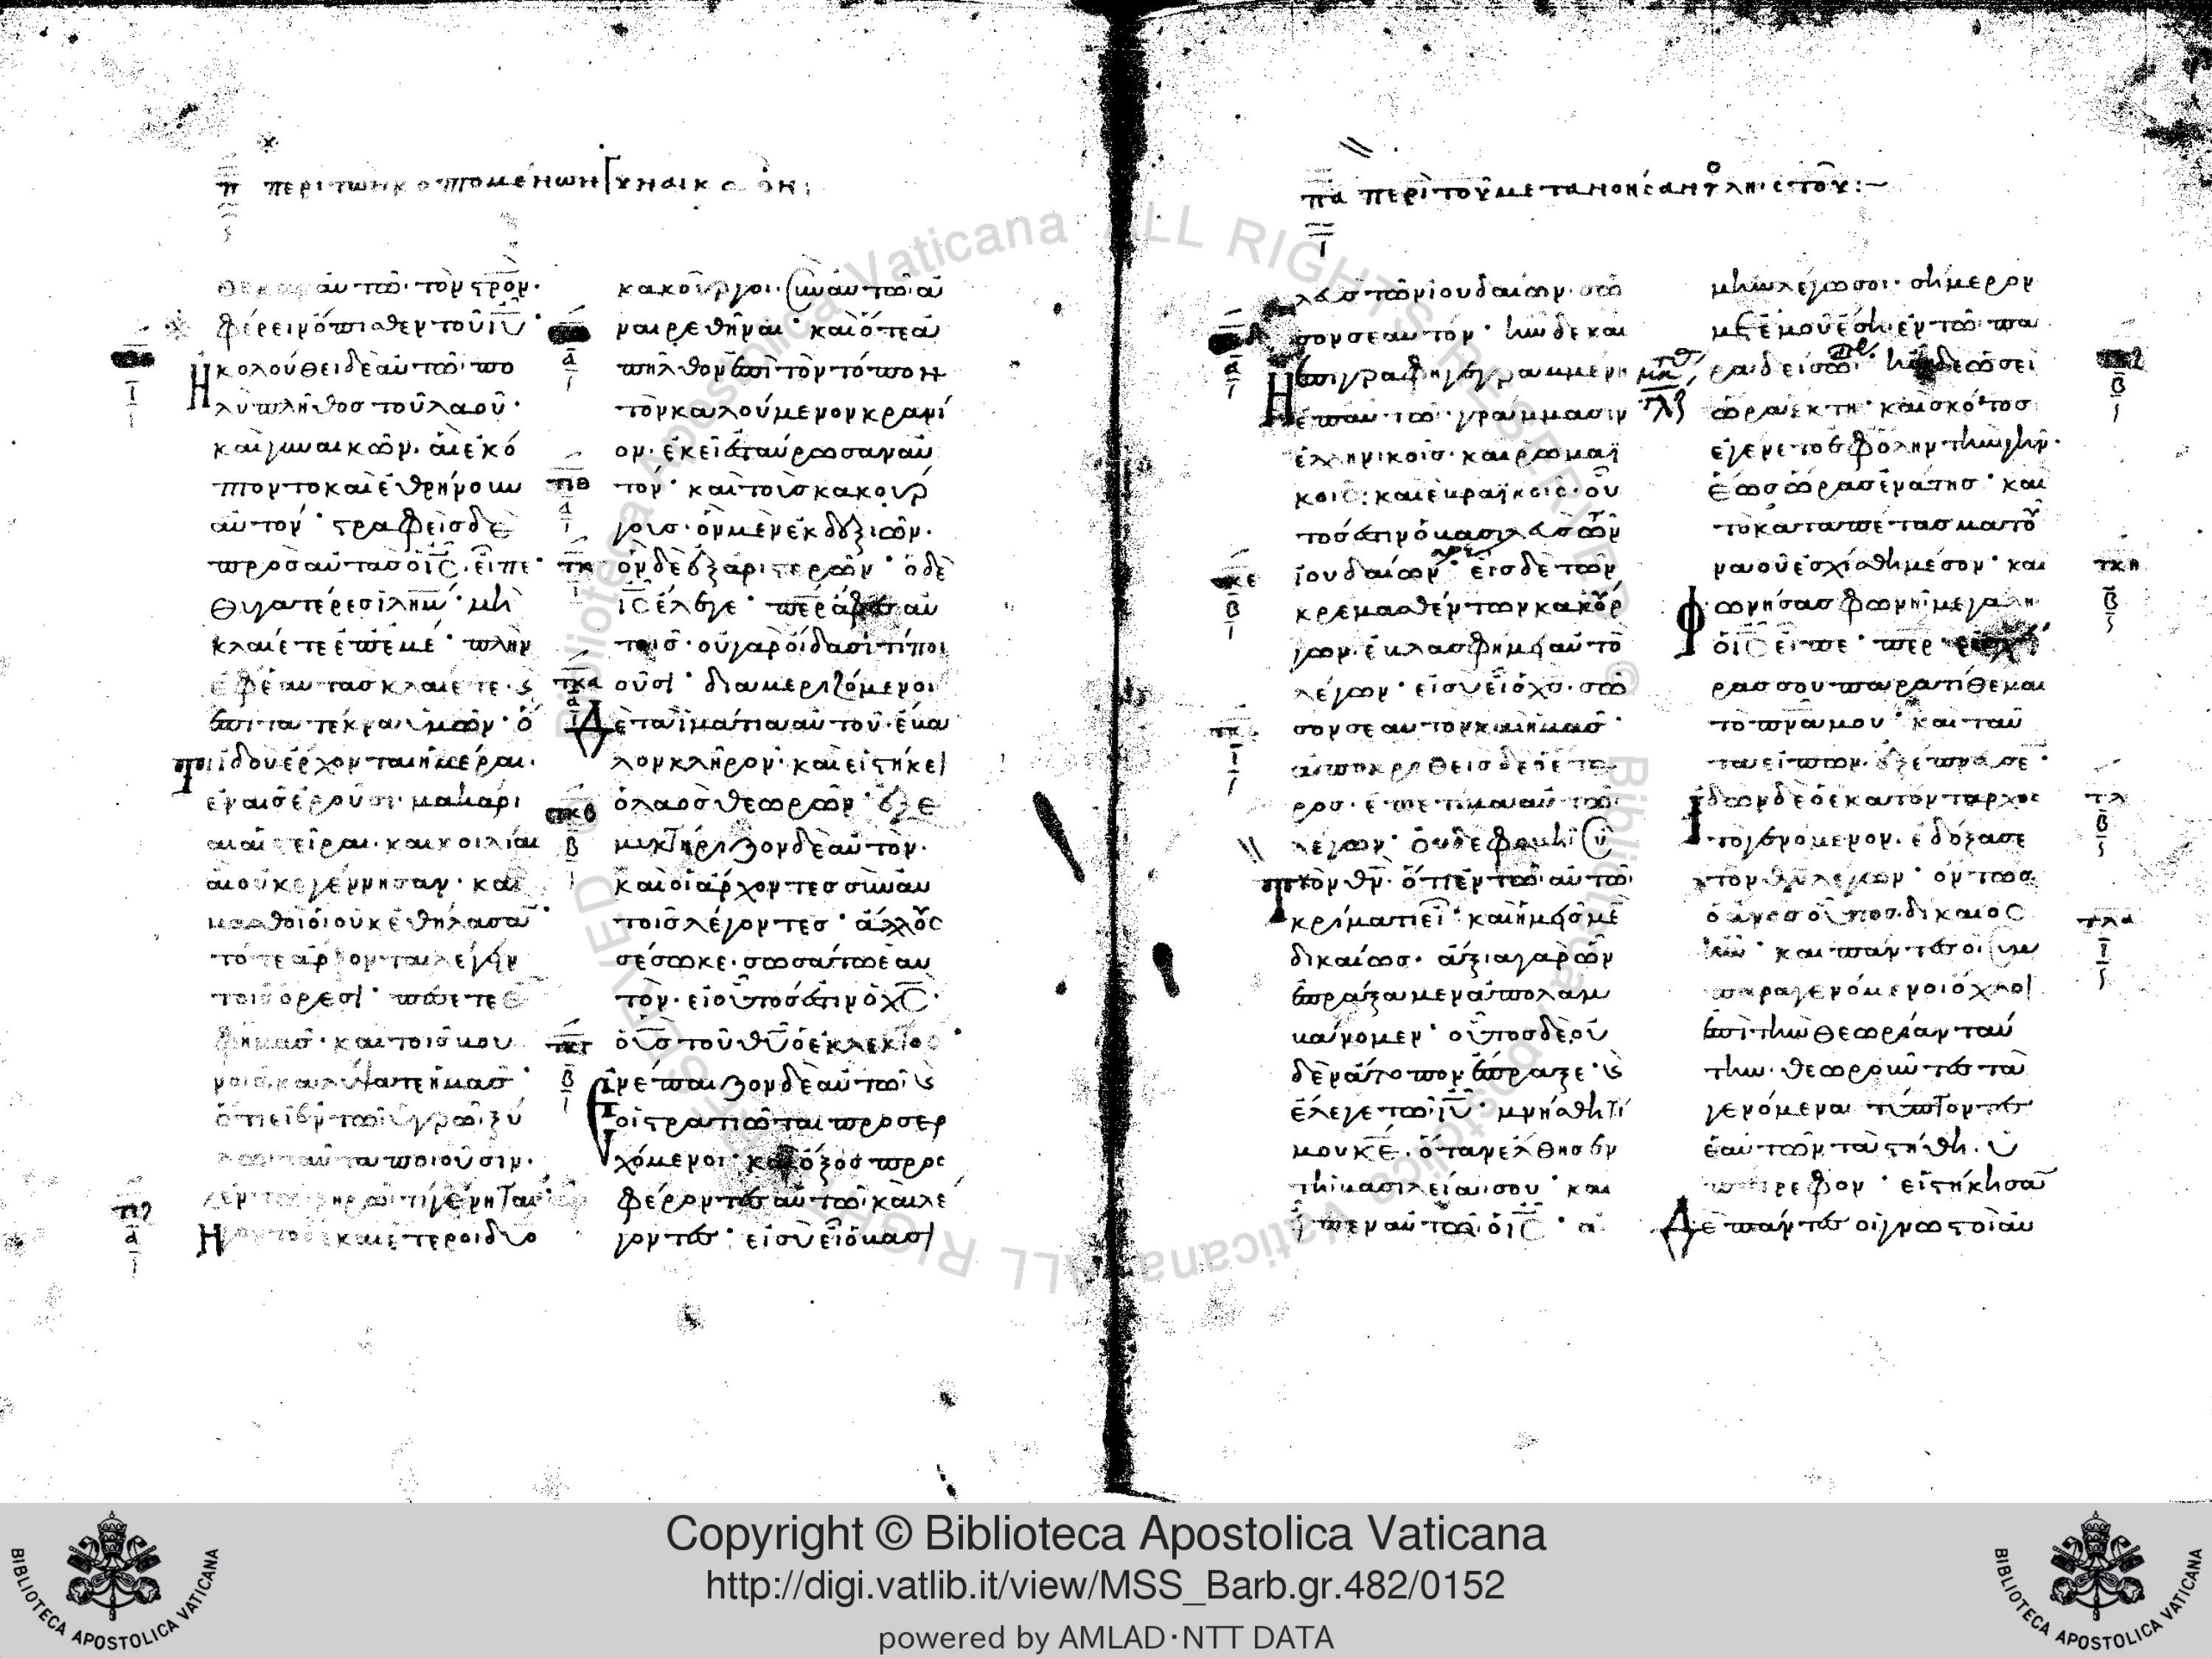 π περὶ τῶν κοπτομένων γυναικῶν:
θηκαν αὐτῶ τὸν στρον·
φέρειν ὄπισθεν τοῦ ιυ·
Ηκολούθει δὲ αὐτῶ πο
λὺ πλῆθος τοῦ λαοῦ·
καὶ γυναικῶν· αἱ ἐκό
πτοντο καὶ ἐθρήνουν
αὐτόν· στραφεὶς δὲ
πρὸς αὐτὰς ὁ ις· εἶπε·
θυγατέρες ιλημ· μὴ
κλαίετε ἐπ' ἐμέ· πλὴν
ἐφ' ἑαυτὰς κλαίετε· κ
ἐπὶ τὰ τέκνα ὑμῶν· ὅ
τι ἰδοὺ ἔρχονται ἡμέραι·
ἐν αἷς ἐροῦσι· μακάρι
αι αἱ στεῖραι· καὶ κοιλίαι
αἳ οὐκ ἐγέννησαν· καὶ
μασθοὶ οἳ οὐκ ἐθήλασαν·
τότε ἄρξονται λέγειν
τοῖς ὄρεσι· πέσετε ἐ
φ' ἡμᾶς· καὶ τοῖς βου
νοῖς καλύψατε ἡμᾶς·
ὅτι εἰ ἐν τῶ ὑγρῶ ξύ
λω ταῦτα ποιοῦσιν·
ἐν τῶ ξηρῶ τί γένηται·
Ηγοντο δὲ καὶ ἕτεροι δύο
κακοῦργοι· σὺν αὐτῶ ἀ
ναιρεθῆναι· καὶ ὅτε ἀ
πῆλθον ἐπὶ τὸν τόπον
τὸν καλούμενον κρανί
ον· ἐκεῖ ἐσταύρωσαν αὐ
τόν· καὶ τοὺς κακούρ
γους· ὃν μὲν ἐκ δεξιῶν·
ὃν δὲ ἐξ ἀριστερῶν· ὁ δὲ
ις ἔλεγε· περ ἄφες αὐ
τοῖς· οὐ γὰρ οἴδασι τί ποι
οῦσι· διαμεριζόμενοι
Δὲ τὰ ἱμάτια αὐτοῦ· ἔβα
λον κλῆρον· καὶ εἱστήκει
ὁ λαὸς θεωρῶν· ἐξε
μυκτήριζον δὲ αὐτὸν·
καὶ οἱ ἄρχοντες σὺν αὐ
τοῖς λέγοντες· ἄλλους
σέσωκε· σωσάτω ἑαυ
τὸν· εἰ οὗτός ἐστιν ὁ χς·
ὁ υς τοῦ θυ ὁ ἐκλεκτός·
Ενέπαιζον δὲ αὐτῶ κ
οἱ στρατιῶται προσερ
χόμενοι· καὶ ὄξος προσ
φέροντες αὐτῶ· καὶ λέ
γοντες· εἰ σὺ εἶ ὁ βασι
πα περὶ τοῦ μετανοήσαντος ληστοῦ:
λεὺς τῶν ἰουδαίων· σῶ
σον σεαυτόν· ἦν δὲ καὶ
ἡ ἐπιγραφὴ γεγραμμένη
ἐπ' αὐτῶ· γράμμασιν
ἑλληνικοῖς· καὶ ῥωμαϊ
κοῖς· καὶ ἑβραϊκοῖς· οὗ
τός ἐστιν ὁ βασιλεὺς τῶν
ἰουδαίων· εἷς δὲ τῶν
κρεμασθέντων κακούρ
γων· ἐβλασφήμει αὐτὸν
λέγων· εἰ σὺ εἶ ὁ χς· σῶ
σον σεαυτὸν καὶ ἡμᾶς·
ἀποκριθεὶς δὲ ὁ ἕτε
ρος· ἐπετίμα αὐτῶ
λέγων· οὐδὲ φοβῆ σὺ
τὸν θν· ὅτι ἐν τῶ αὐτῶ
κρίματι εἶ· καὶ ἡμεῖς μὲν
δικαίως· ἄξια γὰρ ὧν
ἐπράξαμεν ἀπολαμ
βάνομεν· οὗτος δὲ οὐ
δὲν ἄτοπον ἔπραξε· κ
ἔλεγε τῶ ιυ· μνήσθητί
μου κε· ὅταν ἔλθης ἐν
τῆ βασιλεία σου· καὶ
εἶπεν αὐτῶ ὁ ις· ἀ
μὴν λέγω σοι· σήμερον
μετ' ἐμοῦ ἔση ἐν τῶ πα
ραδείσω· ἦν δὲ ὡσεὶ
ὥρα ἕκτη· καὶ σκότος
ἐγένετο ἐφ' ὅλην τὴν γῆν·
ἕως ὥρας ἐνάτης· καὶ
τὸ καταπέτασμα τοῦ
ναοῦ ἐσχίσθη μέσον· καὶ
φωνήσας φωνῆ μεγάλη
ὁ ις εἶπε· περ εἰς χεῖ
ράς σου παρατίθεμαι
τὸ πνα μου· καὶ ταῦ
τα εἰπὼν· ἐξέπνευσε·
Ιδὼν δὲ ὁ ἑκατόνταρχος
τὸ γενόμενον· ἐδόξασε
τὸν θν λέγων· ὄντως
ὁ ανος οὗτος δίκαιος
ἦν· καὶ πάντες οἱ συμ
παραγενόμενοι ὄχλοι
ἐπὶ τὴν θεωρίαν ταύ
την· θεωροῦντες τὰ
γενόμενα τύπτοντες
ἑαυτῶν τὰ στήθη· ὑ
πέστρεφον· εἱστήκησαν
Δὲ πάντες οἱ γνωστοὶ αὐ
Copyright © Biblioteca Apostolica Vaticana
http://digi.vatlib.it/view/MSS_Barb.gr.482/0152
powered by AMLAD·NTT DATA